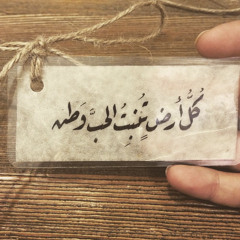 كُلُّ أرضٍ تُنبِتُ الحُبَّ وَطن